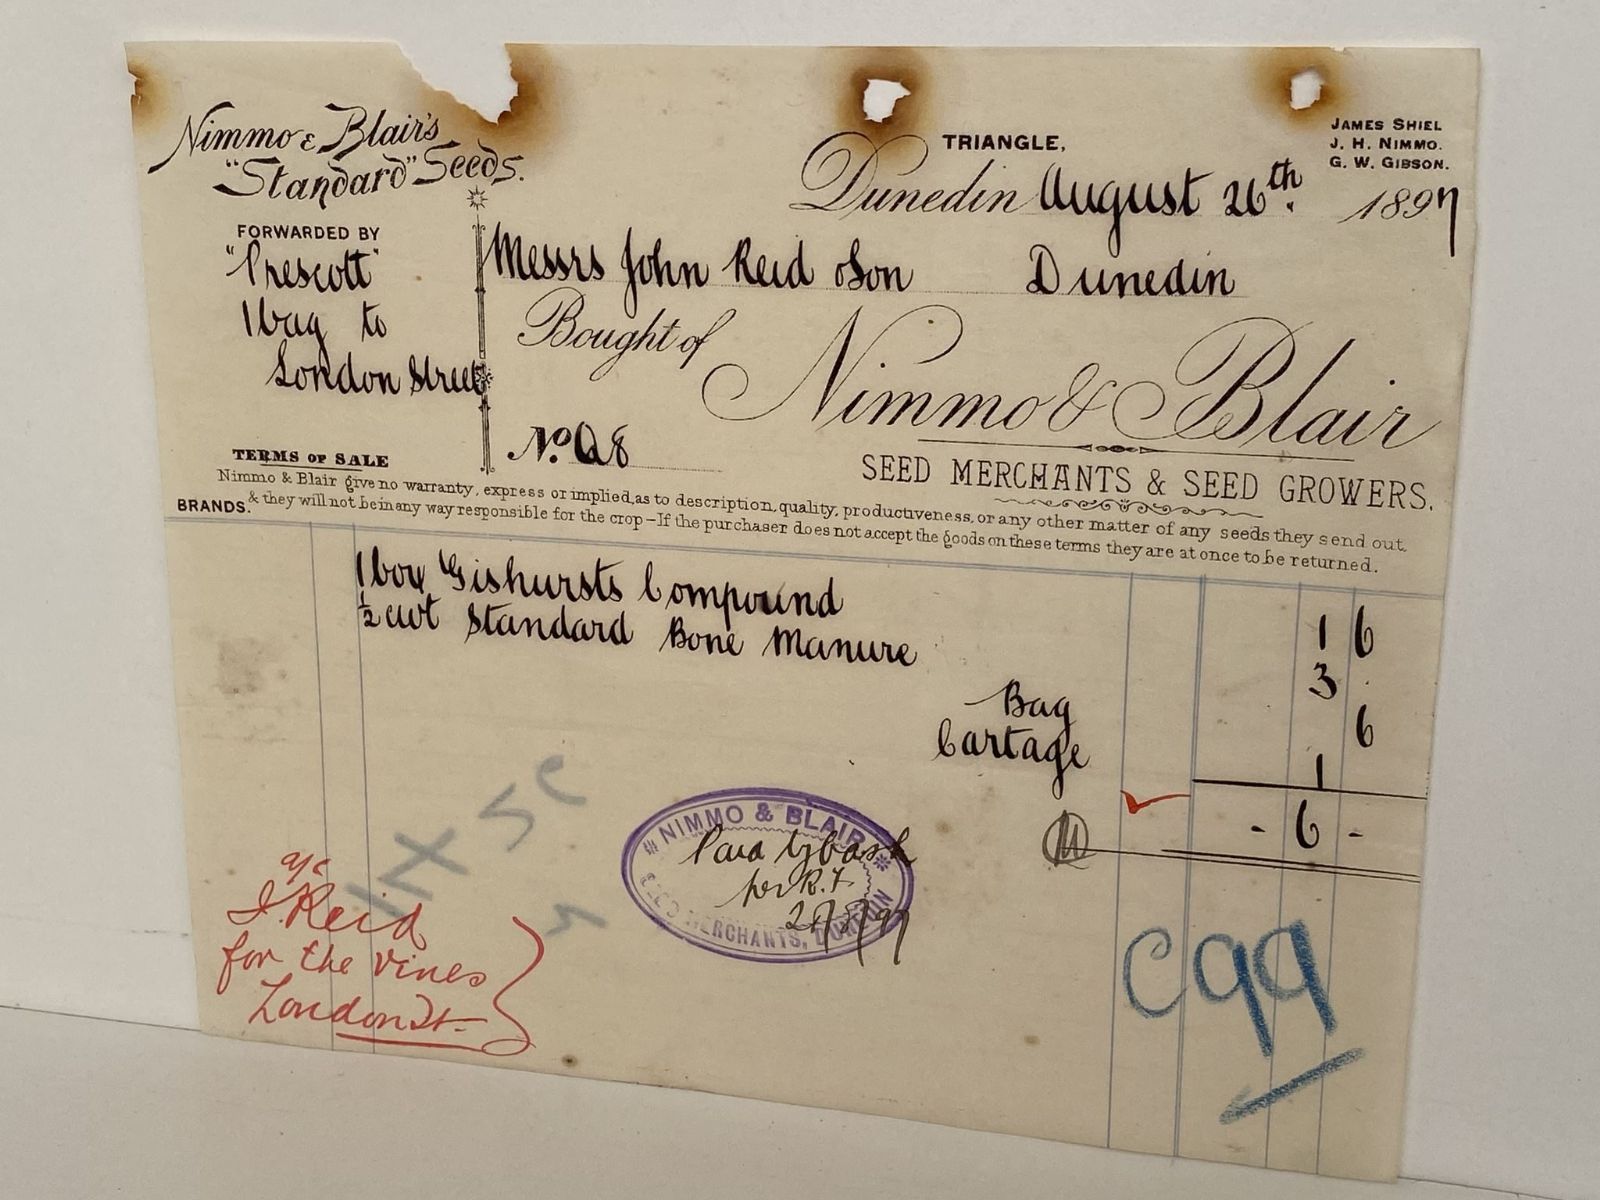 Nimmo & Blair's
"Standard" Seeds.
TRIANGLE,
JAMES SHIEL
J. H. NIMMO.
G. W. GIBSON.
Dunedin August 26th. 1897
FORWARDED BY
"Prescott"
1 bag to
London Street
Messrs John Reid & Son Dunedin
Bought of Nimmo & Blair
SEED MERCHANTS & SEED GROWERS.
No. Q8
TERMS OF SALE
Nimmo & Blair give no warranty, express or implied, as to description, quality, productiveness, or any other matter of any seeds they send out,
& they will not be in any way responsible for the crop – If the purchaser does not accept the goods on these terms they are at once to be returned.
BRANDS.
1 box Gishursts Compound 1 6
½ cwt Standard Bone Manure 3 .
Bag 6
Cartage 1
- 6 -
NIMMO & BLAIR
SEED MERCHANTS, DUNEDIN
Paid by Cash
per R.F.
27/8/97
a/c
J. Reid
for the vines
London St.
C99